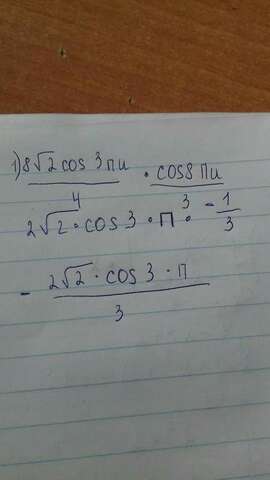 1) 8√2 cos 3 пи · cos 8 пи
4 3
2√2 · cos 3 · п · - 1/3
- 2√2 · cos 3 · п
3